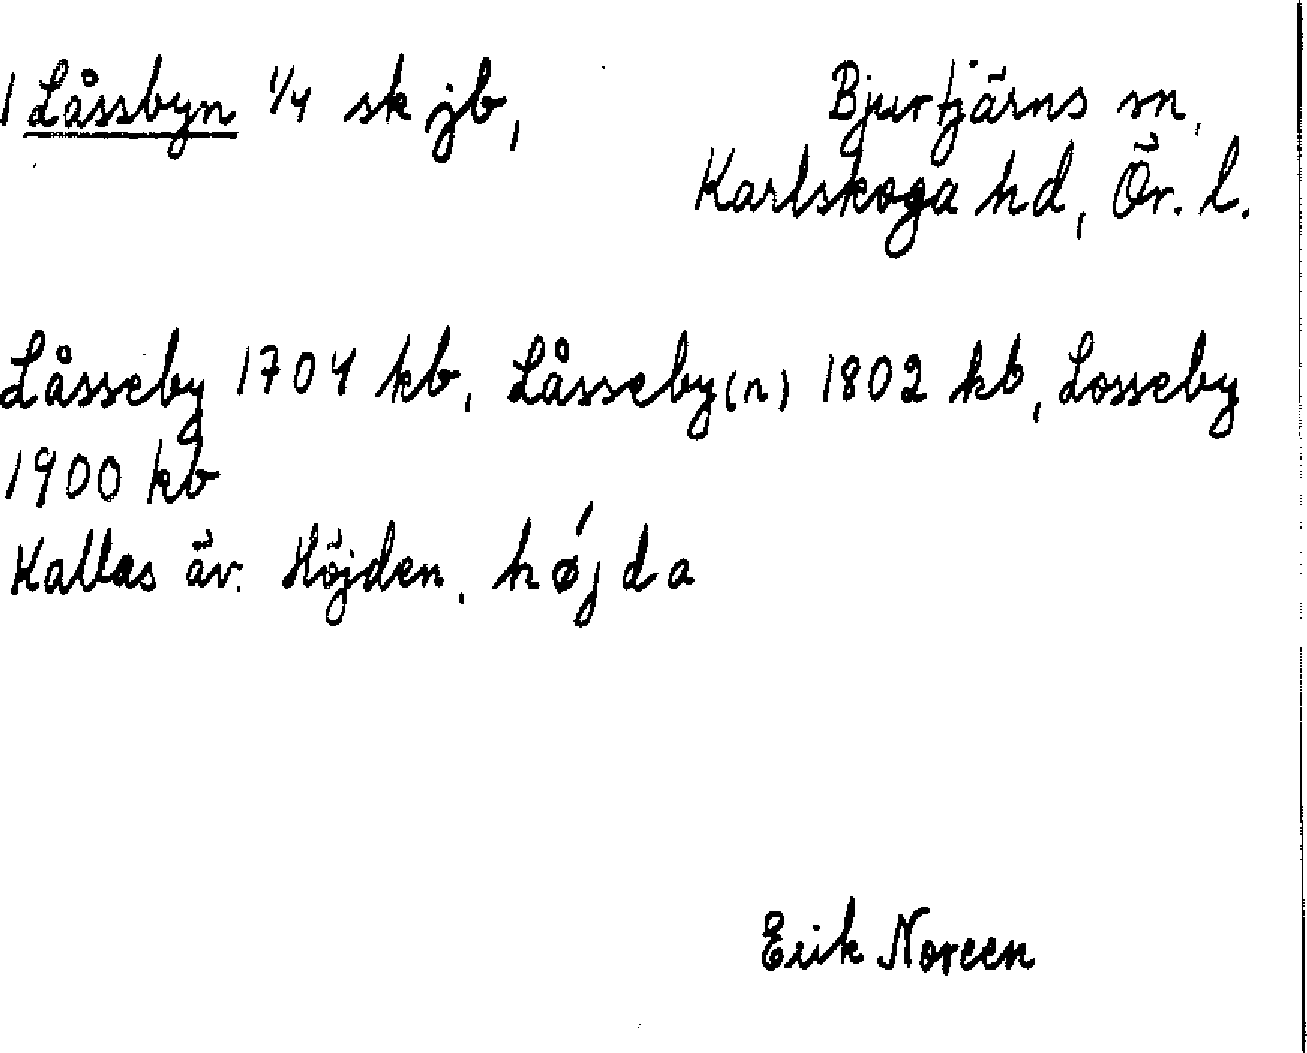 1 Låssbyn 1/4 sk jb,
Bjurtjärns sn,
Karlskoga hd, Ör. l.
Låsseby 1704 kb, Låsseby(n) 1802 kb, Losseby
1900 kb
Kallas äv. Höjden, hǿjda
Erik Noreen